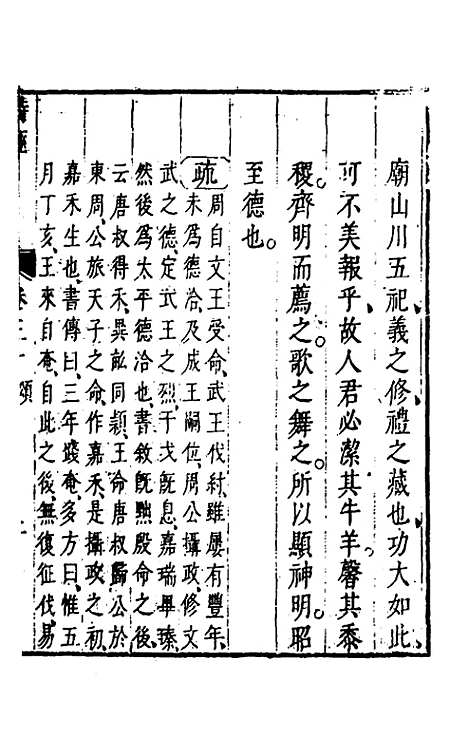 廟山川五祀義之修禮之藏也功大如此
可不美報乎故人君必潔其牛羊馨其黍
稷齊明而薦之歌之舞之所以顯神明昭
至德也
疏周自文王受命武王伐紂雖屢有豐年
未爲德洽及成王嗣位周公攝政修文
武之德定武王之烈于戈既息嘉瑞畢臻
然後爲太平德洽也書敘既黜殷命之後
云唐叔得禾異畝同穎王命唐叔歸公於
東周公旅天子之命作嘉禾是攝政之初
嘉禾生也書傳曰三年踐奄多方曰惟五
月丁亥王來自奄自此之後無復征伐易
詩經 卷三十 頌